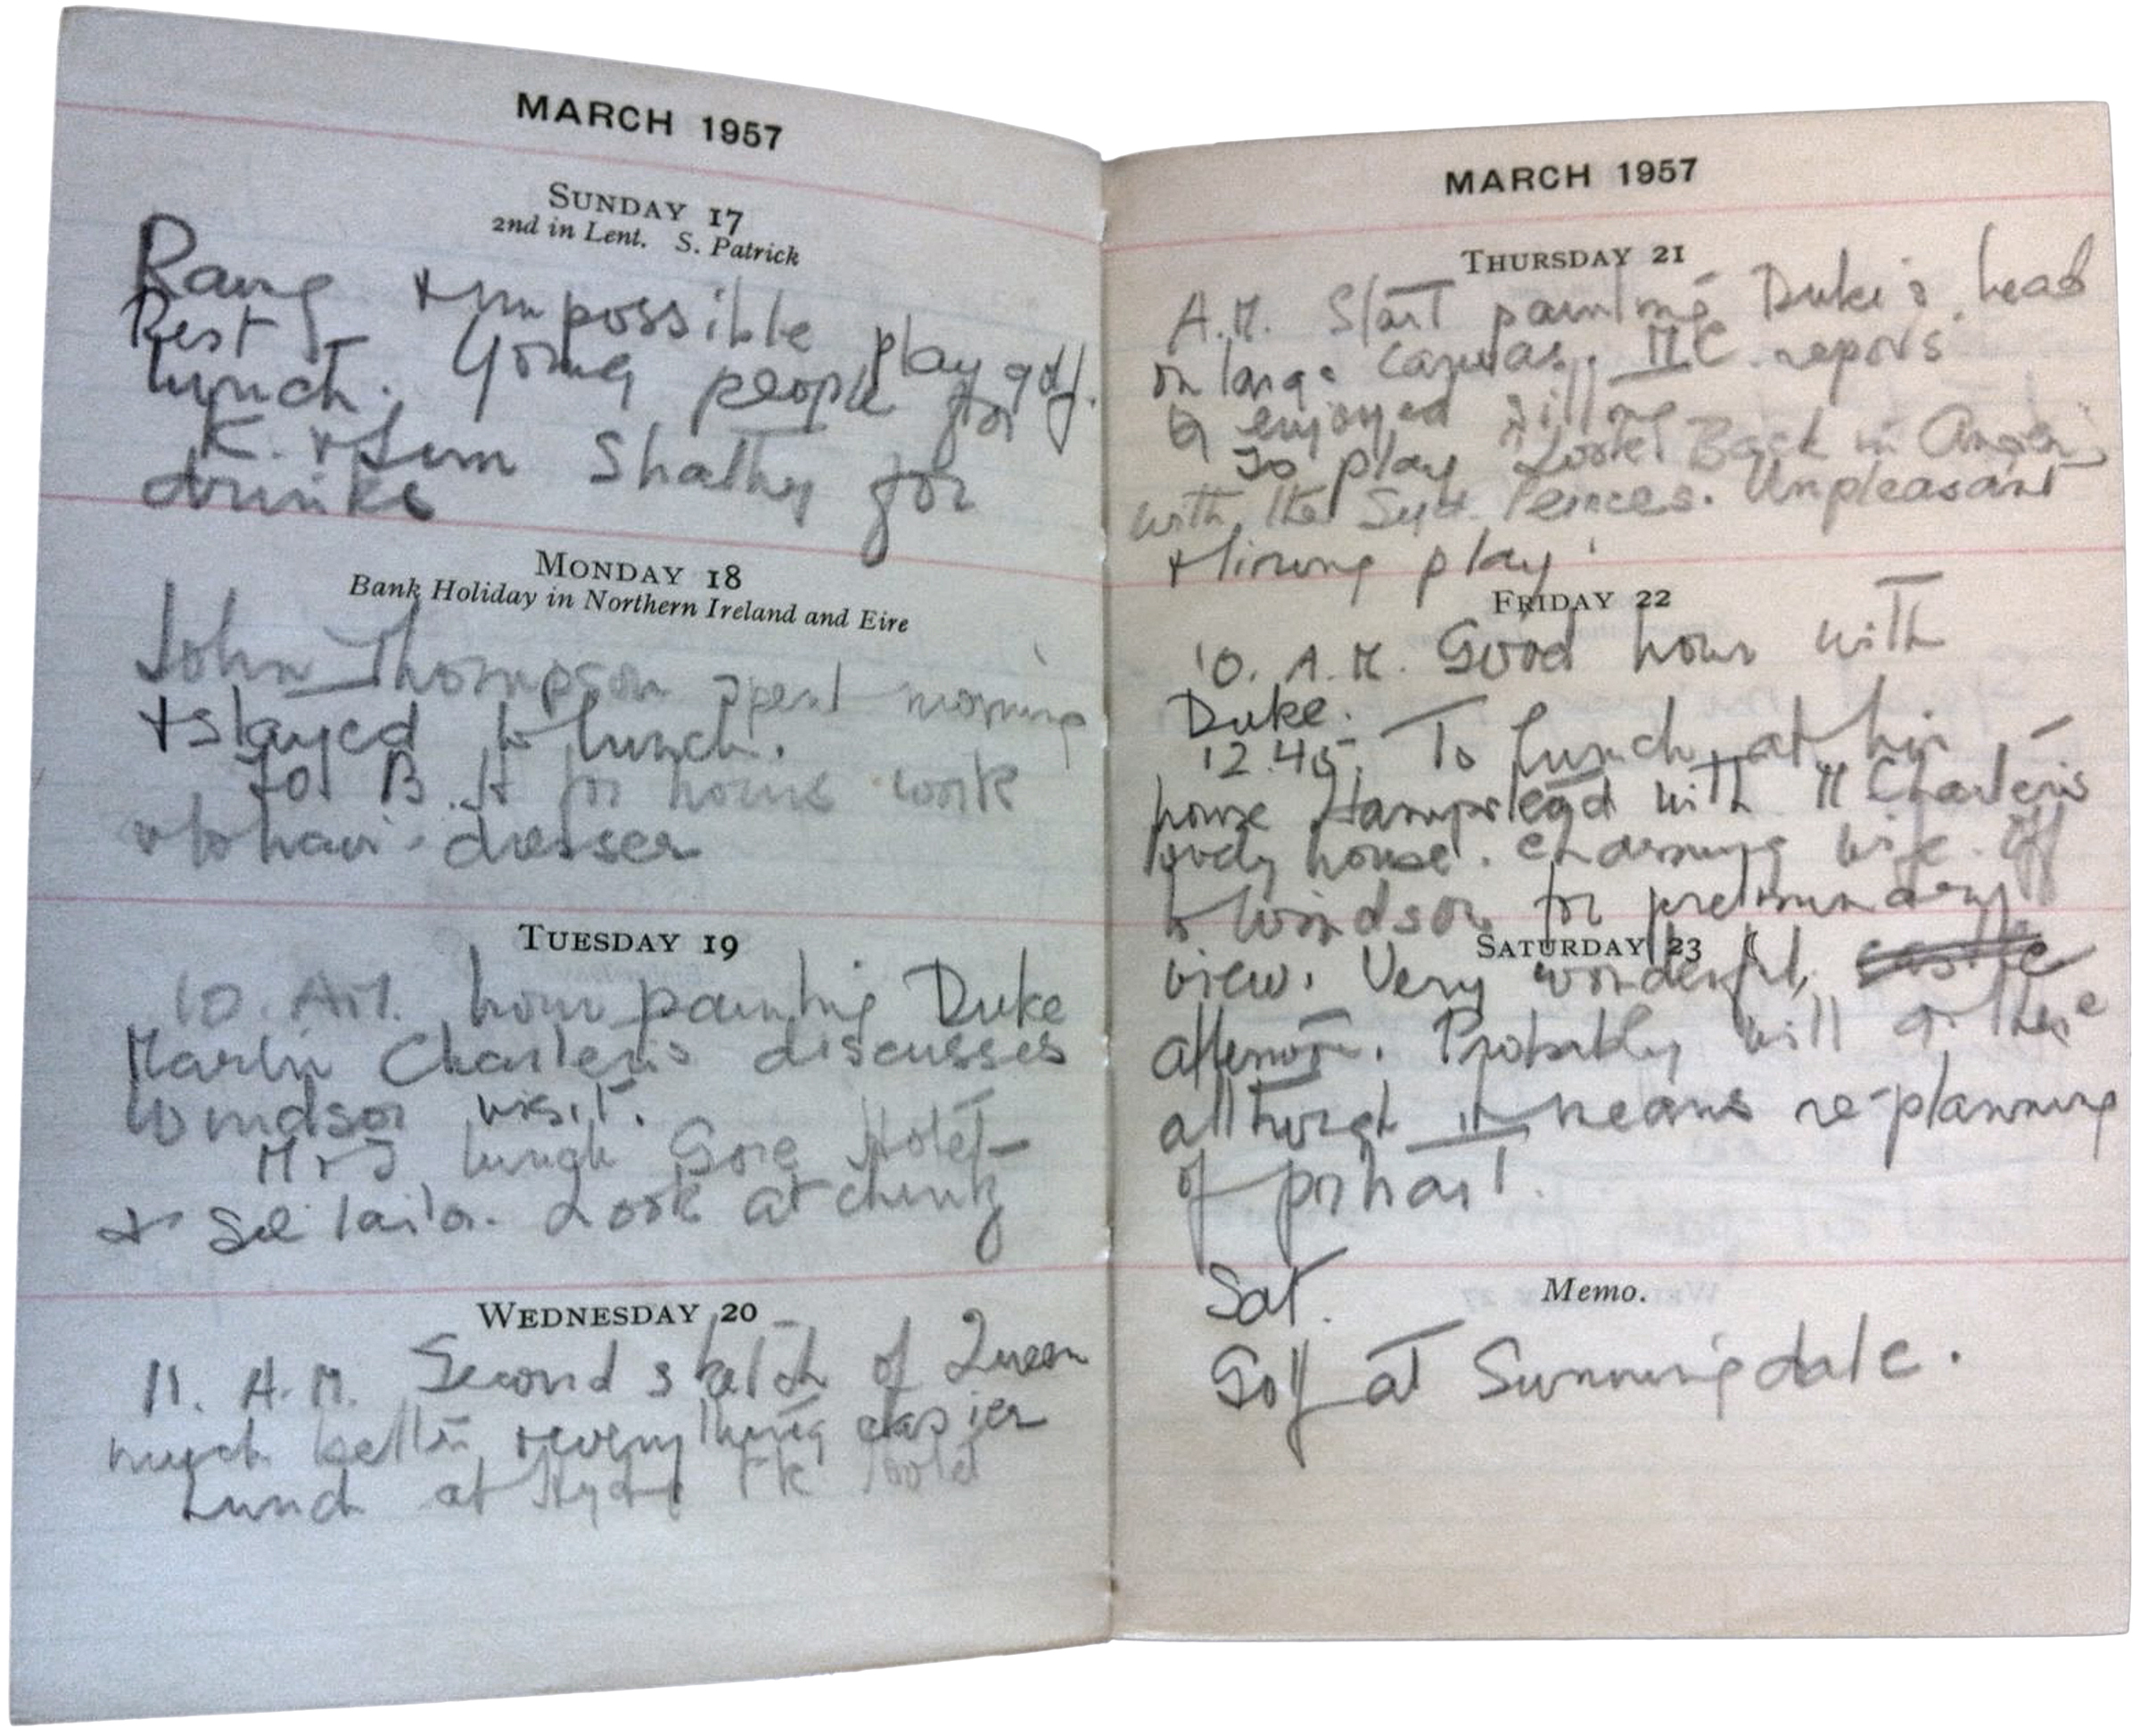 MARCH 1957
SUNDAY 17
2nd in Lent. S. Patrick
Rainy + impossible play golf.
Rest Young people for
lunch.
K. + Jim for
drinks
MONDAY 18
Bank Holiday in Northern Ireland and Eire
John Thompson spent morning
+ stayed to lunch.
J to B. H for house work
+ to hair-dresser
TUESDAY 19
10. A.M. hour painting Duke
Martin Charteris discusses
Windsor visit.
M + J lunch Gore Hotel
+ see tailor. Look at chintz
WEDNESDAY 20
11. A.M. Second sketch of Queen
much better + everything easier
Lunch at Hyde Pk Hotel
MARCH 1957
THURSDAY 21
A.M. Start painting Duke's head
on large canvas. MC reports
Q enjoyed sitting
To play "Look Back in Anger"
with the Peirces. Unpleasant
+ tiring play.
FRIDAY 22
10. A.M. Good hour with
Duke.
12.45. To lunch at his
house Hampstead with M Charteris
lovely house. Charming wife. Off
to Windsor for preliminary
SATURDAY 23
view. Very wonderful, castle
afternoon. Probably will go there
although it means re-planning
of portrait.
Memo.
Sat.
Golf at Sunningdale.